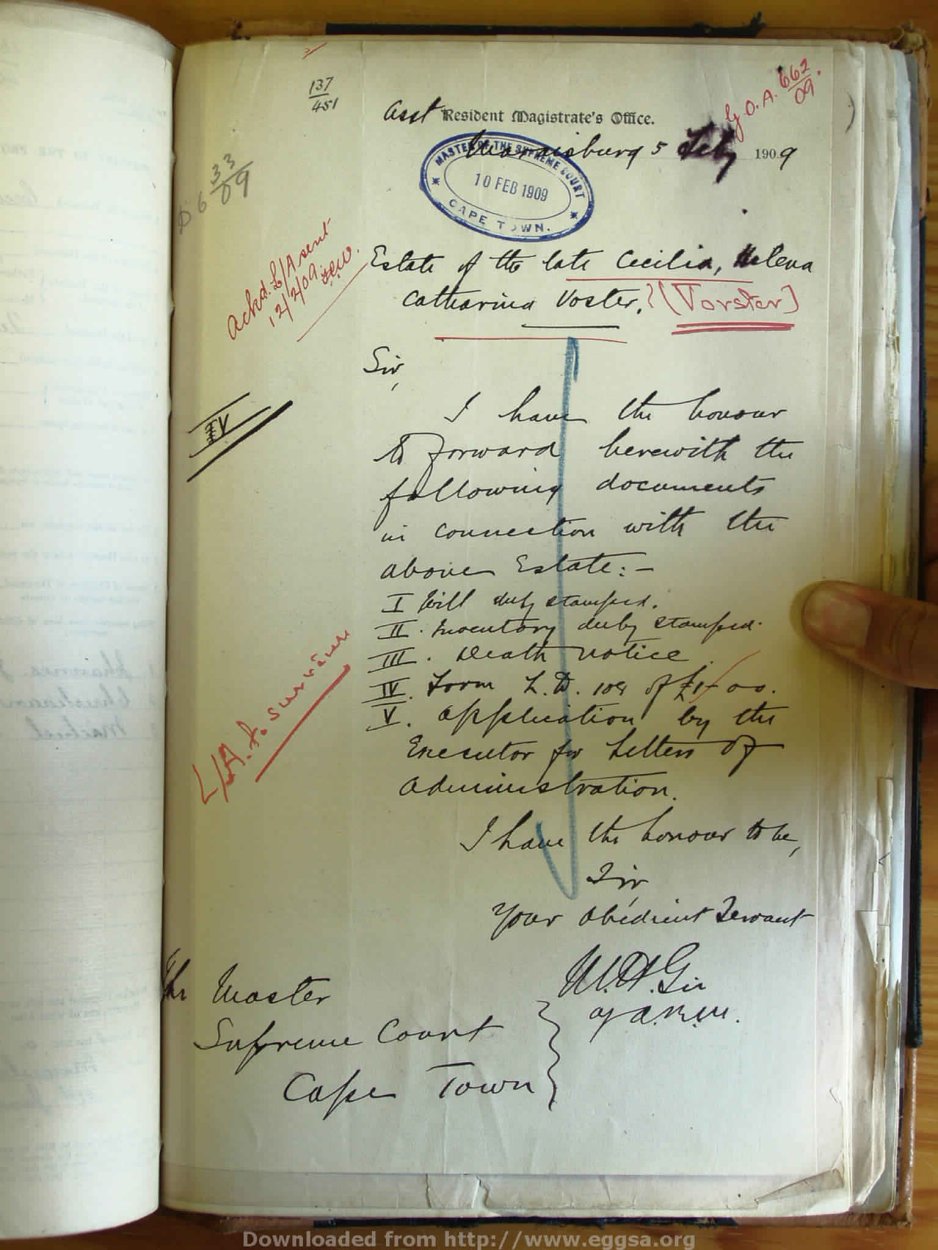 137
451
Asst Resident Magistrate's Office.
G.O.A. 662
09.
Maraisburg 5 Feby 1909
MASTER OF THE SUPREME COURT
10 FEB 1909
CAPE TOWN.
33
09
Ackd. L/A sent
12/2/09.
Estate of the late Cecilia, Helena
Catharina Voster. ? (Vorster)
Sir,
I have the honour
to forward herewith the
following documents
in connection with the
above Estate:-
I Will duly stamped.
II. Inventory duly stamped.
III. Death notice
IV. Form L.D. 109 of £1-0-0.
V. Application by the
Executor for Letters of
Administration.
L/A. to
I have the honour to be,
Sir
Your obedient Servant
The Master
Supreme Court
Cape Town
Downloaded from http://www.eggsa.org